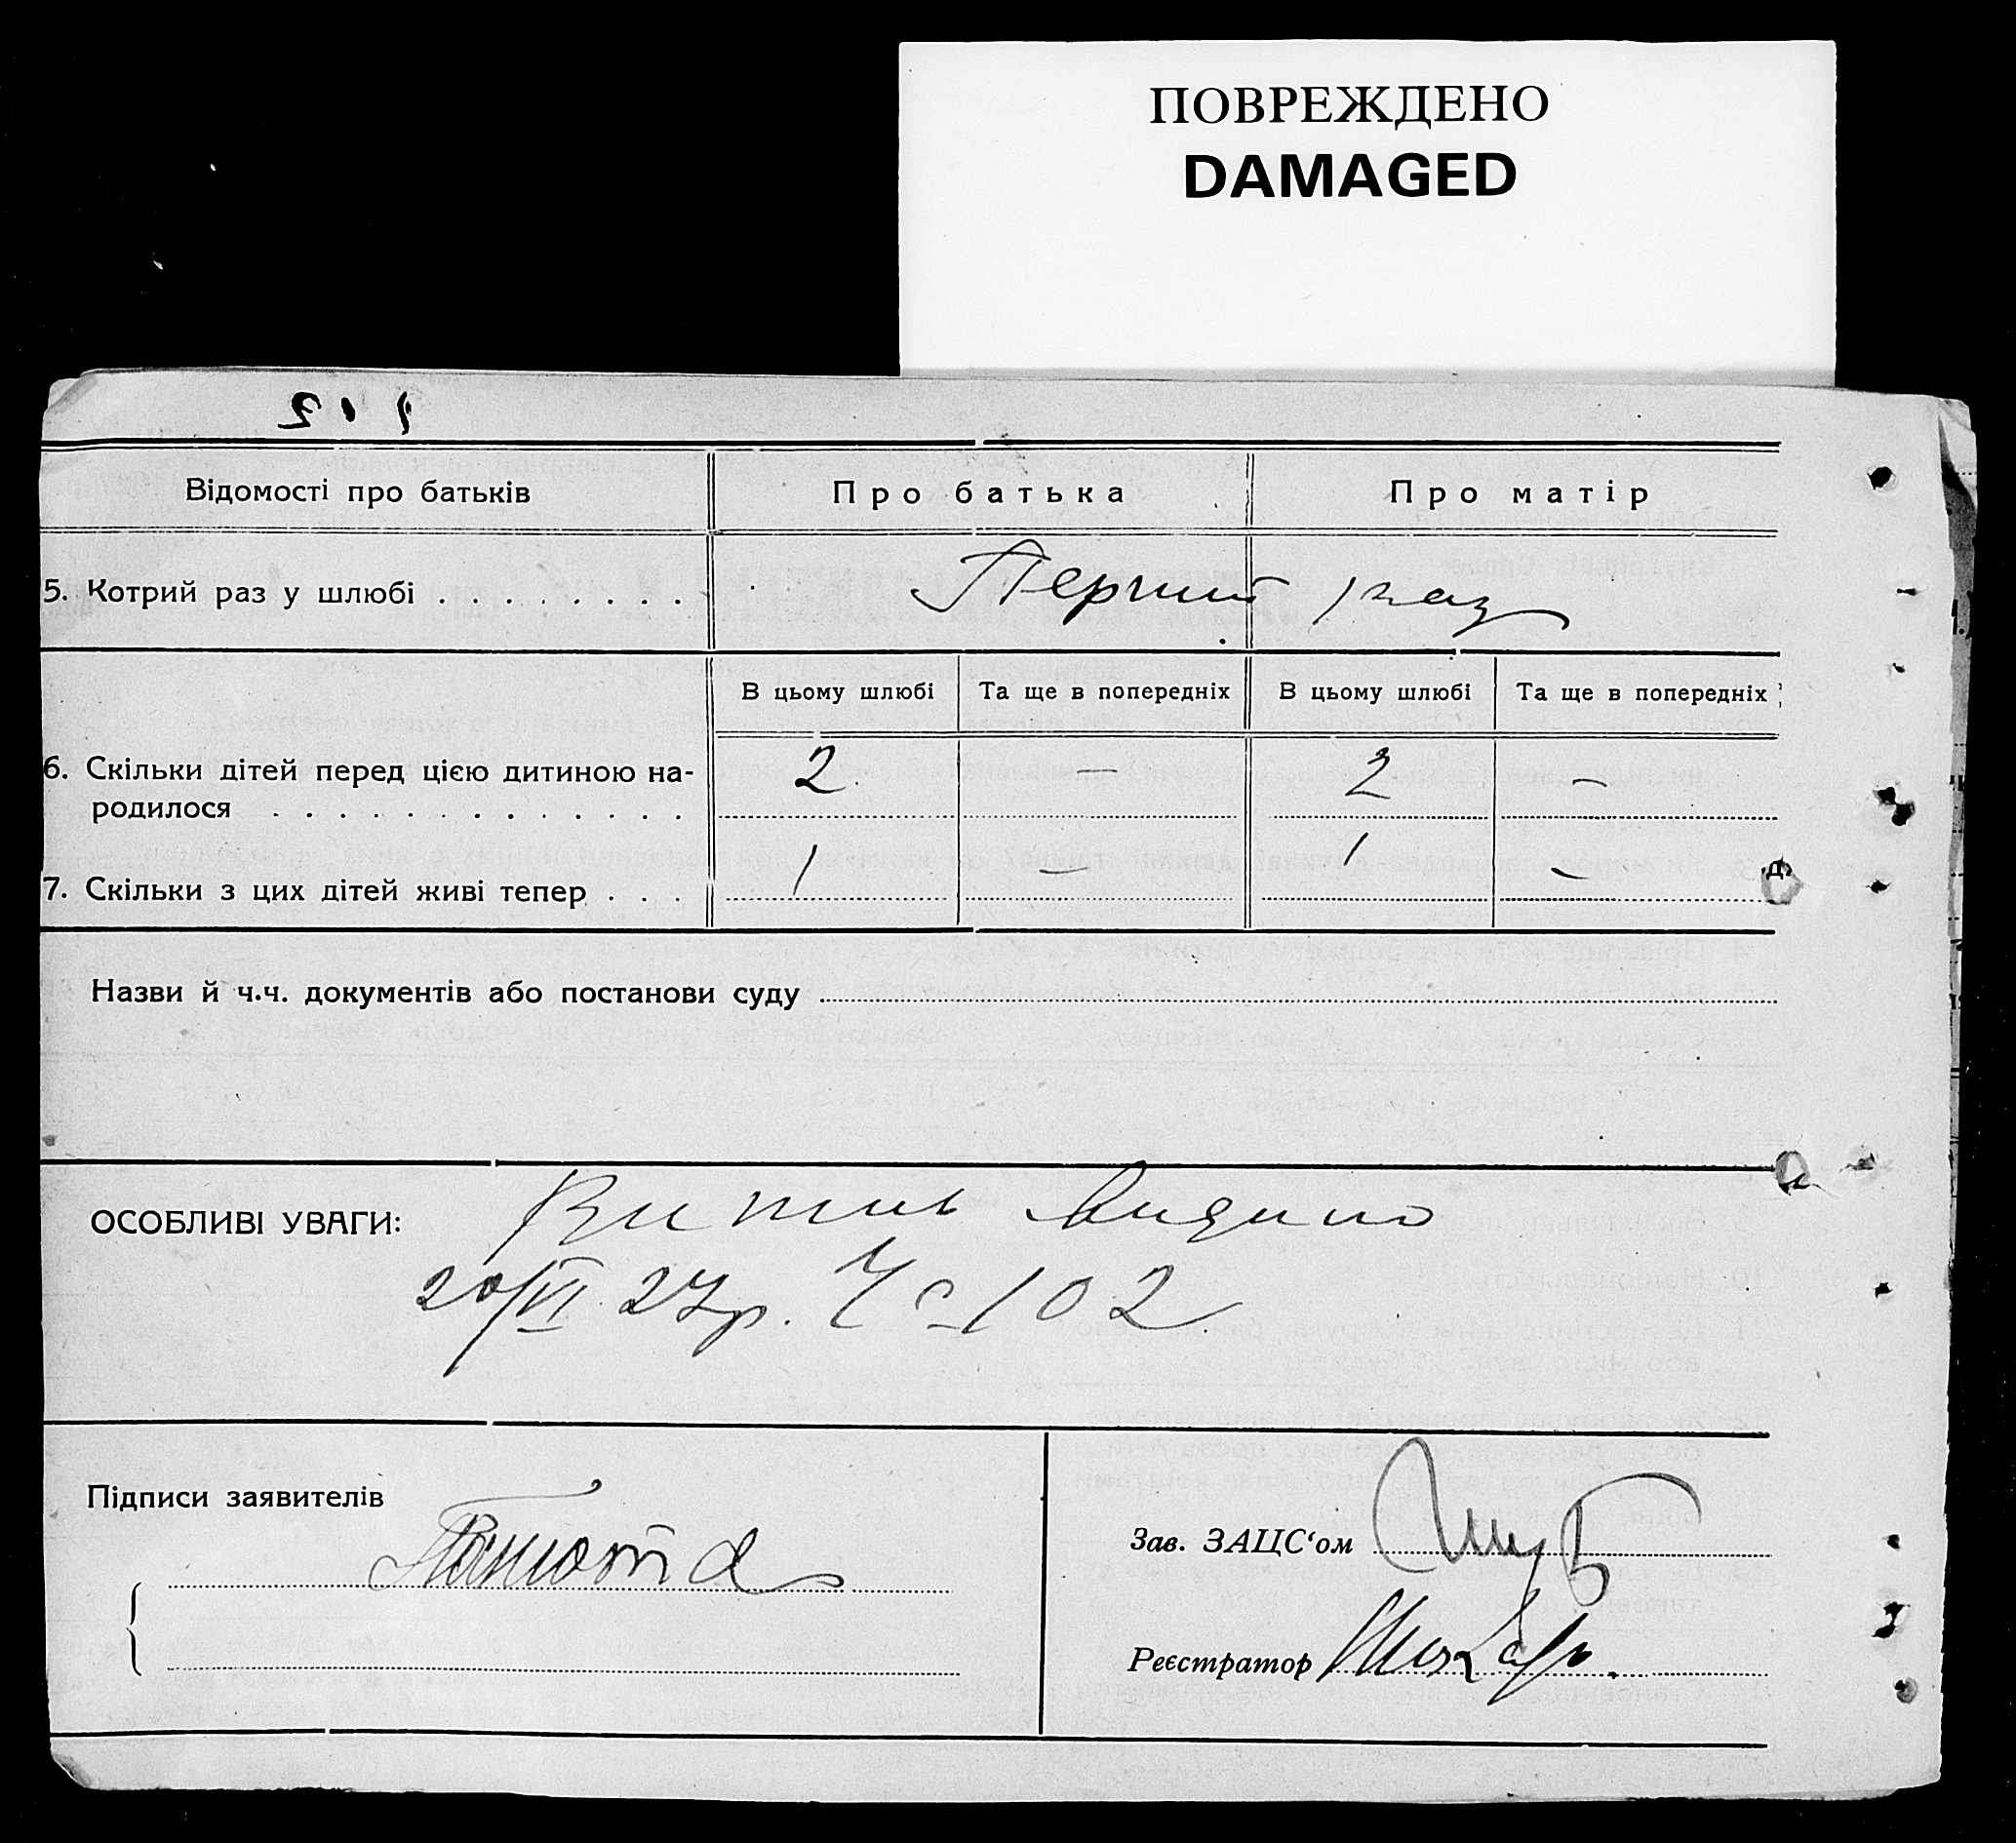 ПОВРЕЖДЕНО
DAMAGED
Відомості про батьків
Про батька
Про матір
5. Котрий раз у шлюбі
Перший раз
В цьому шлюбі
Та ще в попередніх
В цьому шлюбі
Та ще в попередніх
6. Скільки дітей перед цією дитиною на-
родилося
2 — 2 —
7. Скільки з цих дітей живі тепер
1 — 1 —
Назви й ч.ч. документів або постанови суду
ОСОБЛИВІ УВАГИ: Витяг видано
20/VI 27р. Ч 102
Підписи заявителів
Зав. ЗАЦС‘ом
Реєстратор